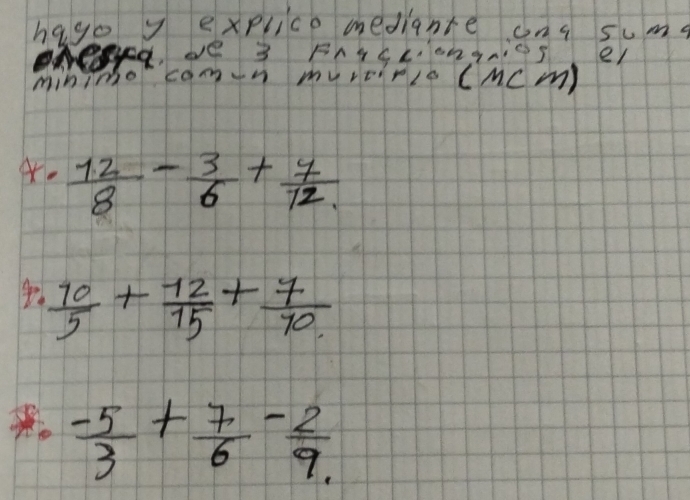 hago y explico mediante una suma
de 3 fraccionarios el
minimo comun multiplo (MCM)
*. 12/8 - 3/6 + 7/12.
*. 10/5 + 12/15 + 7/10.
*. -5/3 + 7/6 - 2/9.